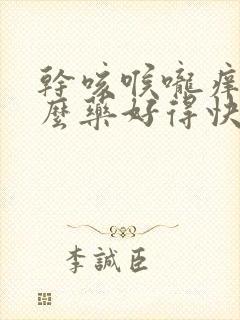 幹咳喉嚨癢
麼藥好得快
李誠臣